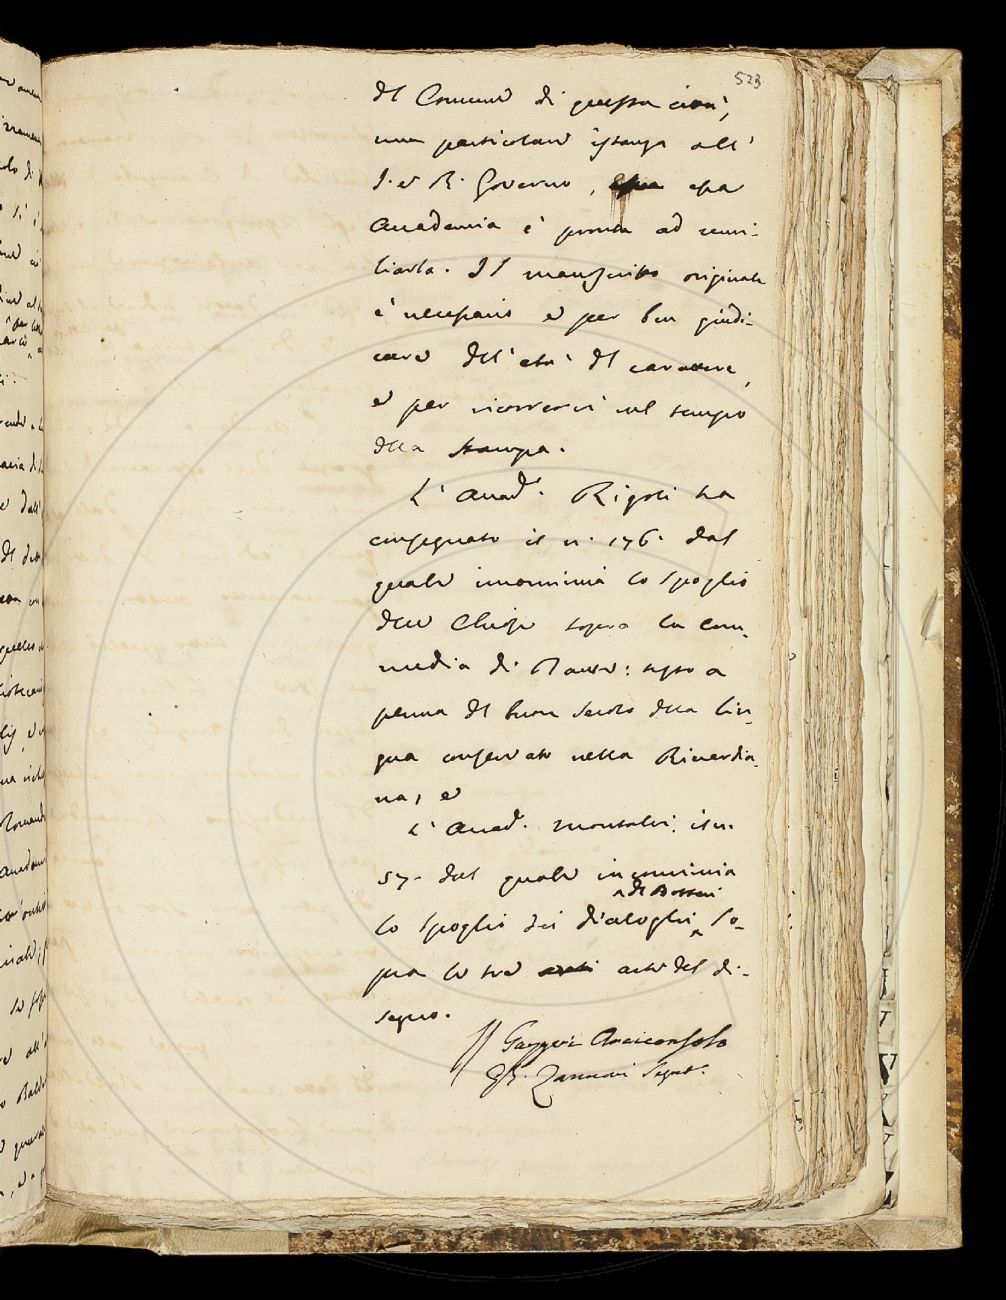 523
del Comune di questa città,
una particolare istanza all'
I. e R. Governo, essa
Accademia è pronta ad umi-
liarla. Il manuscritto originale
è necessario e per ben giudi-
care dell'età del carattere,
e per ricorrervi nel tempo
della stampa.
L'Accad.º Rigoli ha
consegnato il n. 176. dal
quale incomincia lo spoglio
delle Chiose sopra la Com-
media di Dante: testo a
penna del buon secolo della lin-
gua conservato nella Riccardia-
na, e
L'Accad. Montalvi il n.
57. dal quale incomincia
^ del Bottari
lo spoglio dei dialoghi ^ so-
pra le tre arti del di-
segno.
Arciconsolo
G. B. Zannoni Segret.